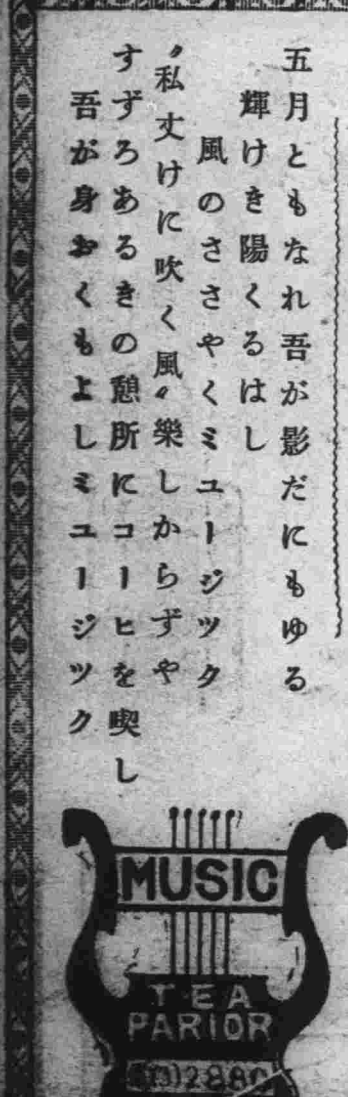 五月ともなれ吾が影だにもゆる
輝けき陽くるはし
風のささやくミユージツク
〝私丈けに吹く風〟樂しからずや
すずろあるきの憩所にコーヒを喫し
吾が身おくもよしミユージツク
MUSIC
TEA
PARIOR
2880